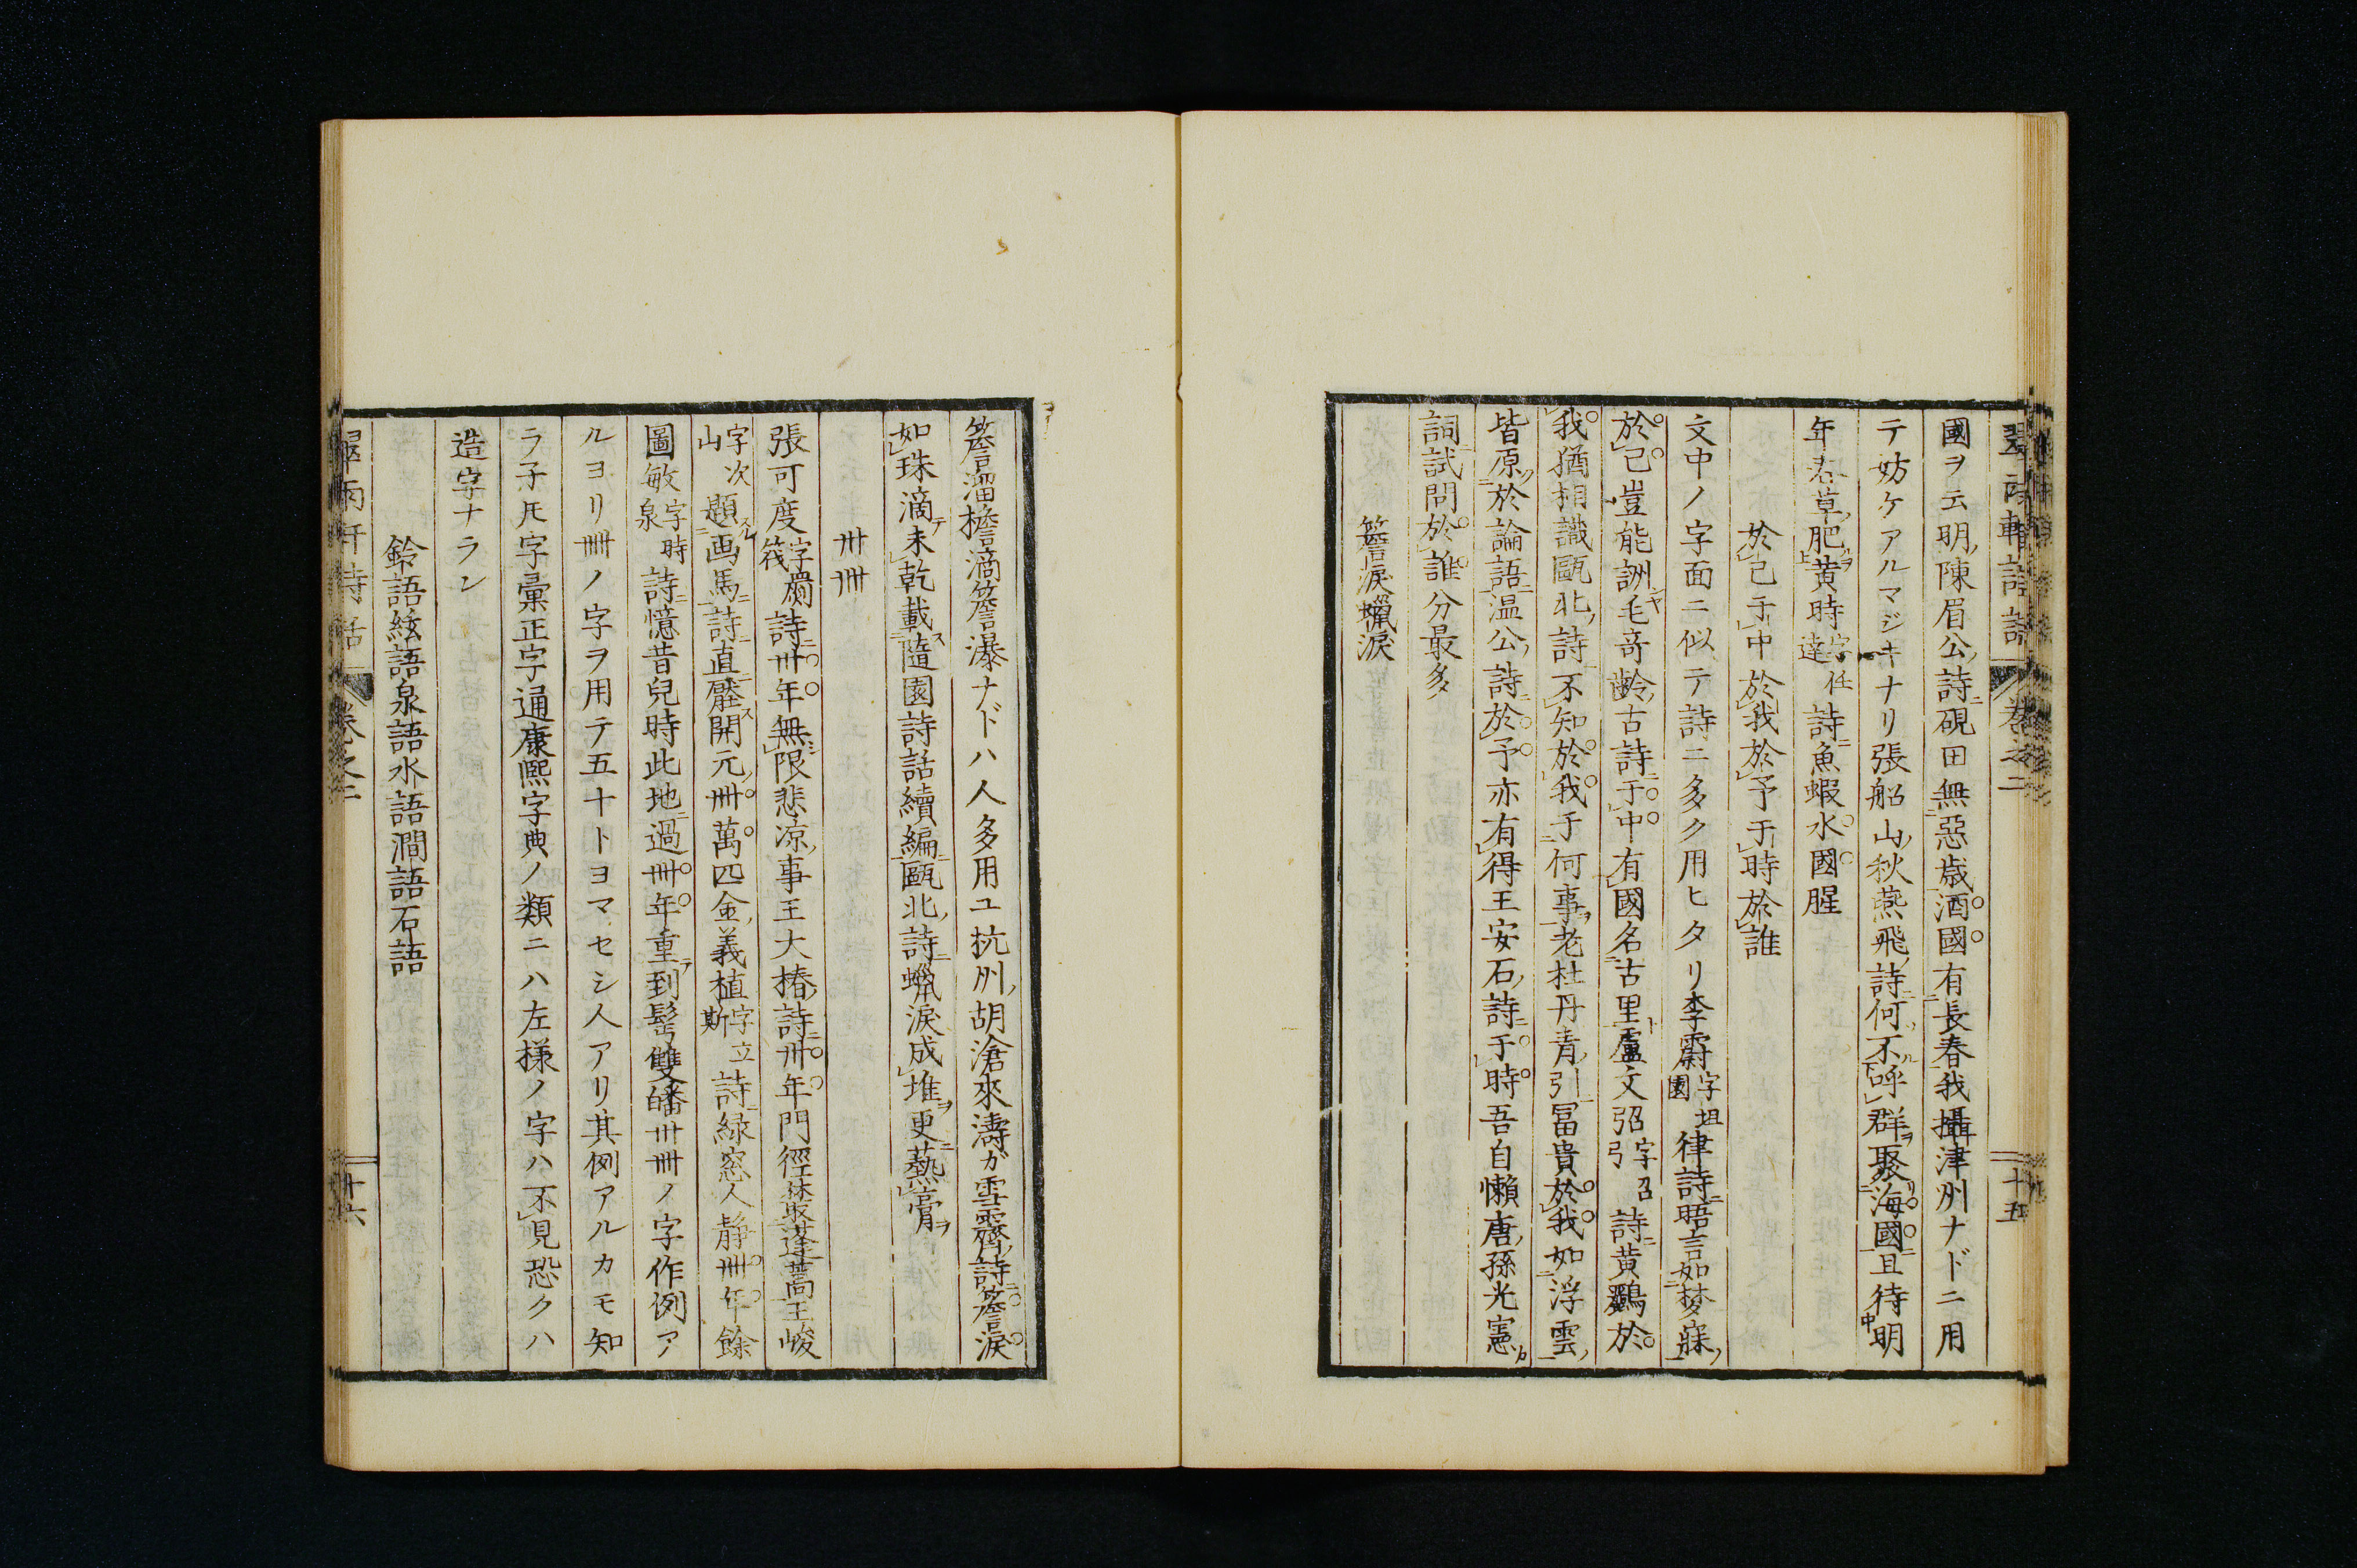 國ヲ云明陳眉公詩硯田無惡歳酒國有長春我攝津州ナドニ用
テ妨ケアルマジキナリ張船山秋燕飛詩何不呼群聚海國且待明
年春草肥黄時字任達詩魚蝦水國腥
於己于中於我於予于時於誰
文中ノ字面ニ似テ詩ニ多ク用ヒタリ李霨字坦國律詩晤言如夢寐
於己豈能訓毛竒齡古詩于中有國名古里盧文弨字召弓詩黄鸝於
我猶相識甌北詩不知於我于何事老杜丹青引冨貴於我如浮雲
皆原於論語温公詩於予亦有得王安石詩于時吾自懶唐孫光憲
詞試問於誰分最多
簷涙蠟涙
簷溜檐滴簷瀑ナドハ人多用ユ抗州胡滄來濤ガ雪霽詩簷涙
如珠滴未乾載隨園詩話續編甌北詩蠟涙成堆更爇膏
卅卌
張可度字蔚筏詩卅年無限悲凉事王大椿詩卅年門徑萩蓬蒿王峻
字次山題画馬詩直壓開元卌萬四金義植字立斯詩緑窓人静卌年餘
圖敏字時泉詩憶昔兒時此地過卌年重到髩雙皤卅卌ノ字作例ア
ルヨリ卌ノ字ヲ用テ五十トヨマセシ人アリ其例アルカモ知
ラ子𪜈字彙正字通康熙字典ノ類ニハ左様ノ字ハ不見恐クハ
造字ナラン
鈴語絃語泉語水語澗語石語